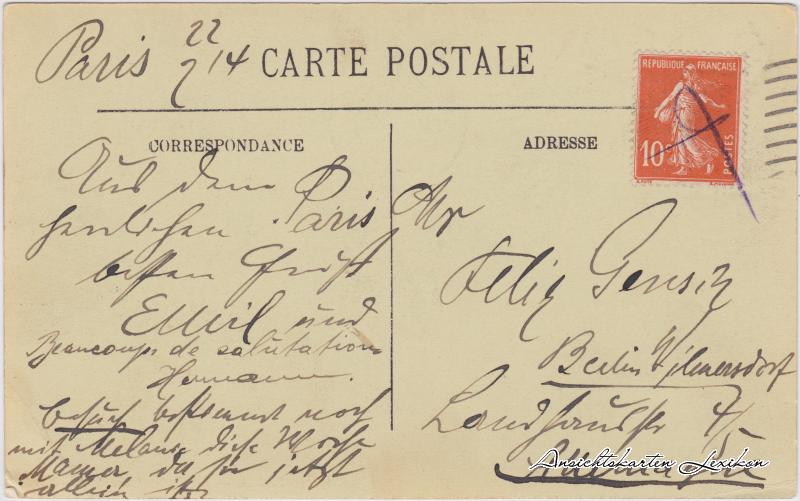 Paris 22/2 14
CARTE POSTALE
REPUBLIQUE FRANÇAISE
10c
POSTES
CORRESPONDANCE
ADRESSE
Aus dem Paris
herrlichen
besten Gruß
Emil und
Beaucoups de salutation
Hermann.
besuch bestimmt noch
mit Melanie diese Woche
Mama da sie jetzt
allein ist
Mr
Felix Gensch
Berlin Wilmersdorf
Landhausstr 4/
Allemagne
Ansichtskarten Lexikon